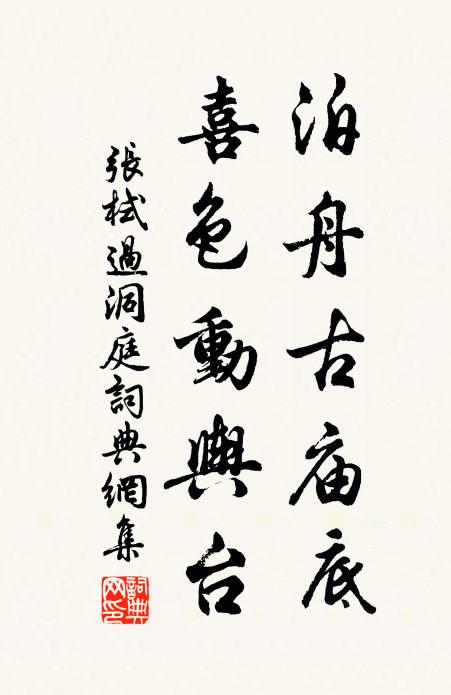 泊舟古庙底
喜色動輿台
張栻過洞庭詞典網集
詞典网印